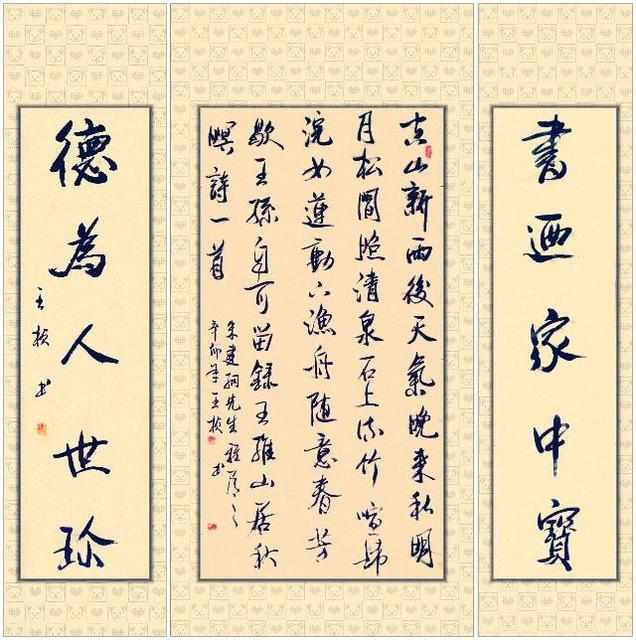 書画家中寶
空山新雨後天氣晚来秋明
月松間照清泉石上流竹喧歸
浣女蓮動下漁舟随意春芳
歇王孫自可留録王維山居秋
暝詩一首
朱建先生雅属之
辛卯年王书
德為人世珍
王书